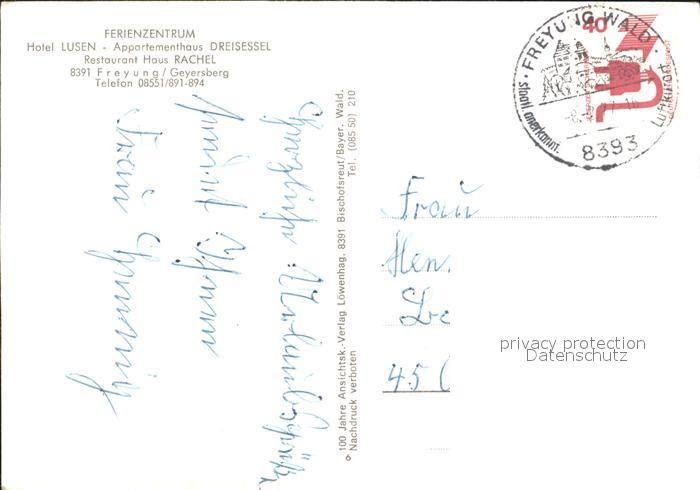 FERIENZENTRUM
Hotel LUSEN - Appartementhaus DREISESSEL
Restaurant Haus RACHEL
8391 Freyung/Geyersberg
Telefon 08551/891-894
Herzliche Urlaubsgrüße
sendet Ihnen
Frau
100 Jahre Ansichtsk.-Verlag Löwenhag. 8391 Bischofsreut/Bayer. Wald.
Tel. (085 50) 210
Nachdruck verboten
6
FREYUNG WALD
40
staatl anerkannt.
Luftkurort
8393
Frau
Hen.
De
45
privacy protection
Datenschutz